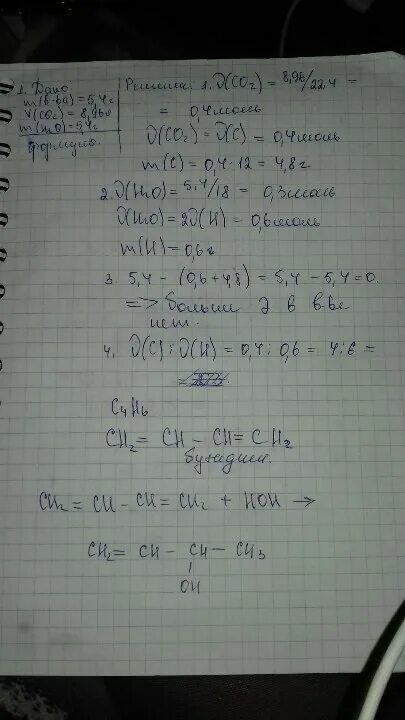 1. Дано
m(в-ва)=5,4г
V(CO2)=8,96л
m(H2O)=5,4г
формула.
Решение. 1. ϑ(CO2) = 8,96/22,4 =
= 0,4моль
ϑ(CO2) = ϑ(C) = 0,4моль
m(C) = 0,4·12 = 4,8г
2. ϑ(H2O) = 5,4/18 = 0,3моль
ϑ(H2O) = 2ϑ(H) = 0,6моль
m(H) = 0,6г
3. 5,4 - (0,6+4,8) = 5,4 - 5,4 = 0.
=> больше Э в в-ве
нет.
4. ϑ(C) : ϑ(H) = 0,4 : 0,6 = 4:6 =
=
C4H6
CH2 = CH - CH = CH2
бутадиен.
CH2 = CH - CH = CH2 + HOH →
CH2 = CH - CH - CH3
OH